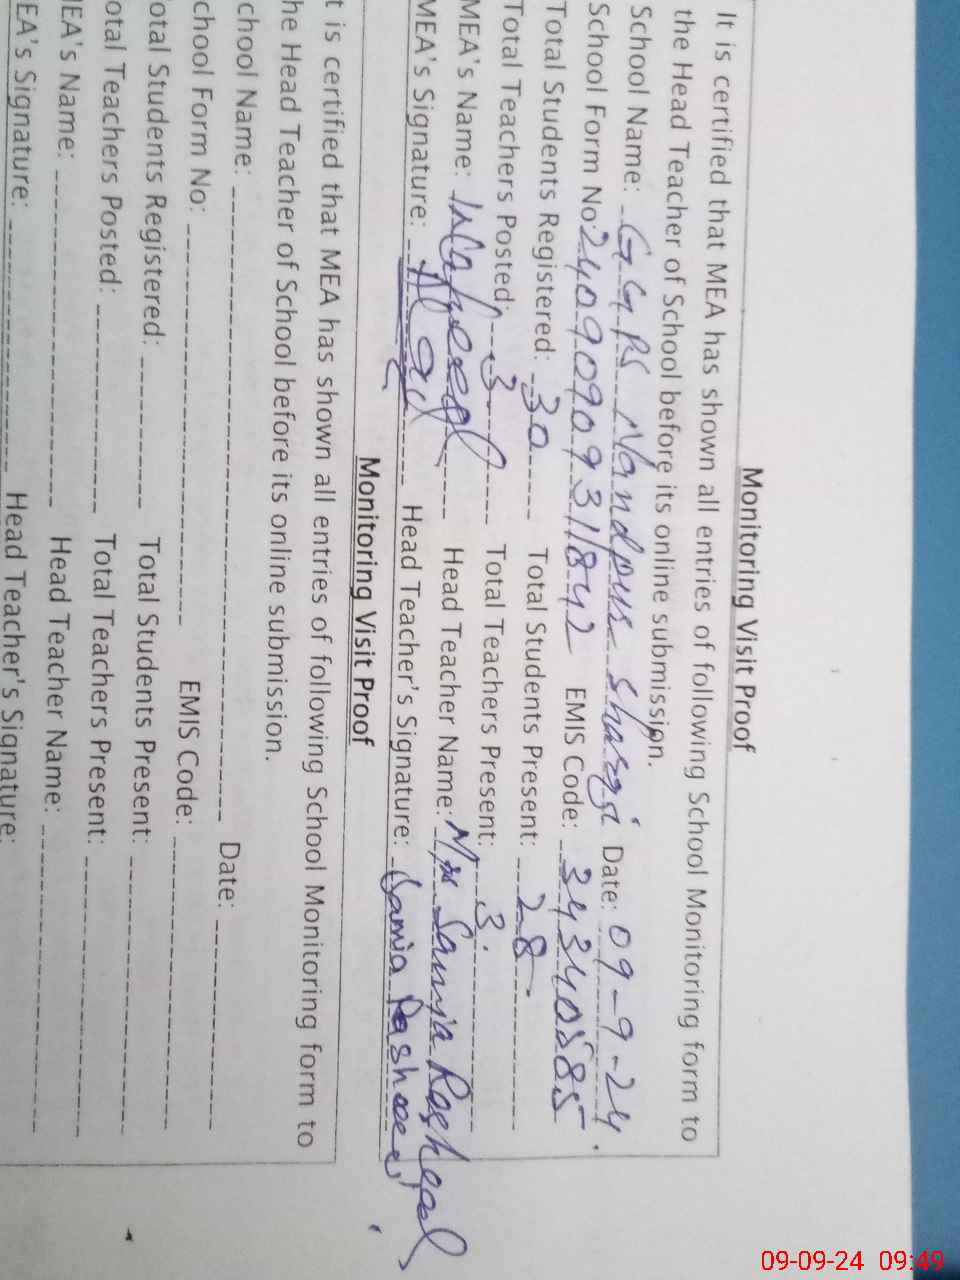 Monitoring Visit Proof
It is certified that MEA has shown all entries of following School Monitoring form to
the Head Teacher of School before its online submission.
School Name: GGPS Nandpur Sharqi Date: 09-9-24.
School Form No: 24090909311842 EMIS Code: 34340585
Total Students Registered: 30 Total Students Present: 28
Total Teachers Posted: 3 Total Teachers Present: 3.
MEA's Name: Head Teacher Name: Samia Rasheed
MEA's Signature: Head Teacher's Signature: Samia Rasheed
Monitoring Visit Proof
t is certified that MEA has shown all entries of following School Monitoring form to
he Head Teacher of School before its online submission.
chool Name: Date:
chool Form No: EMIS Code:
otal Students Registered: Total Students Present:
otal Teachers Posted: Total Teachers Present:
EA's Name: Head Teacher Name:
EA's Signature: Head Teacher's Signature:
09-09-24 09:49